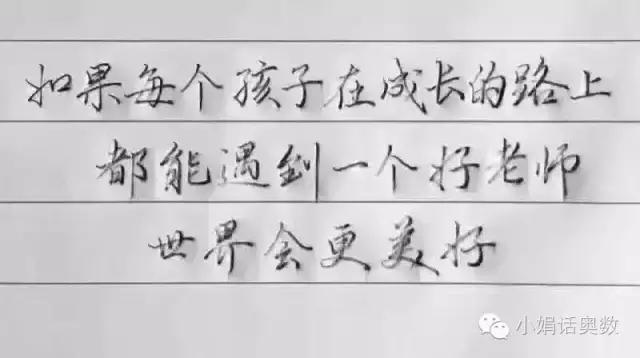 如果每个孩子在成长的路上
都能遇到一个好老师
世界会更美好
小娟话奥数